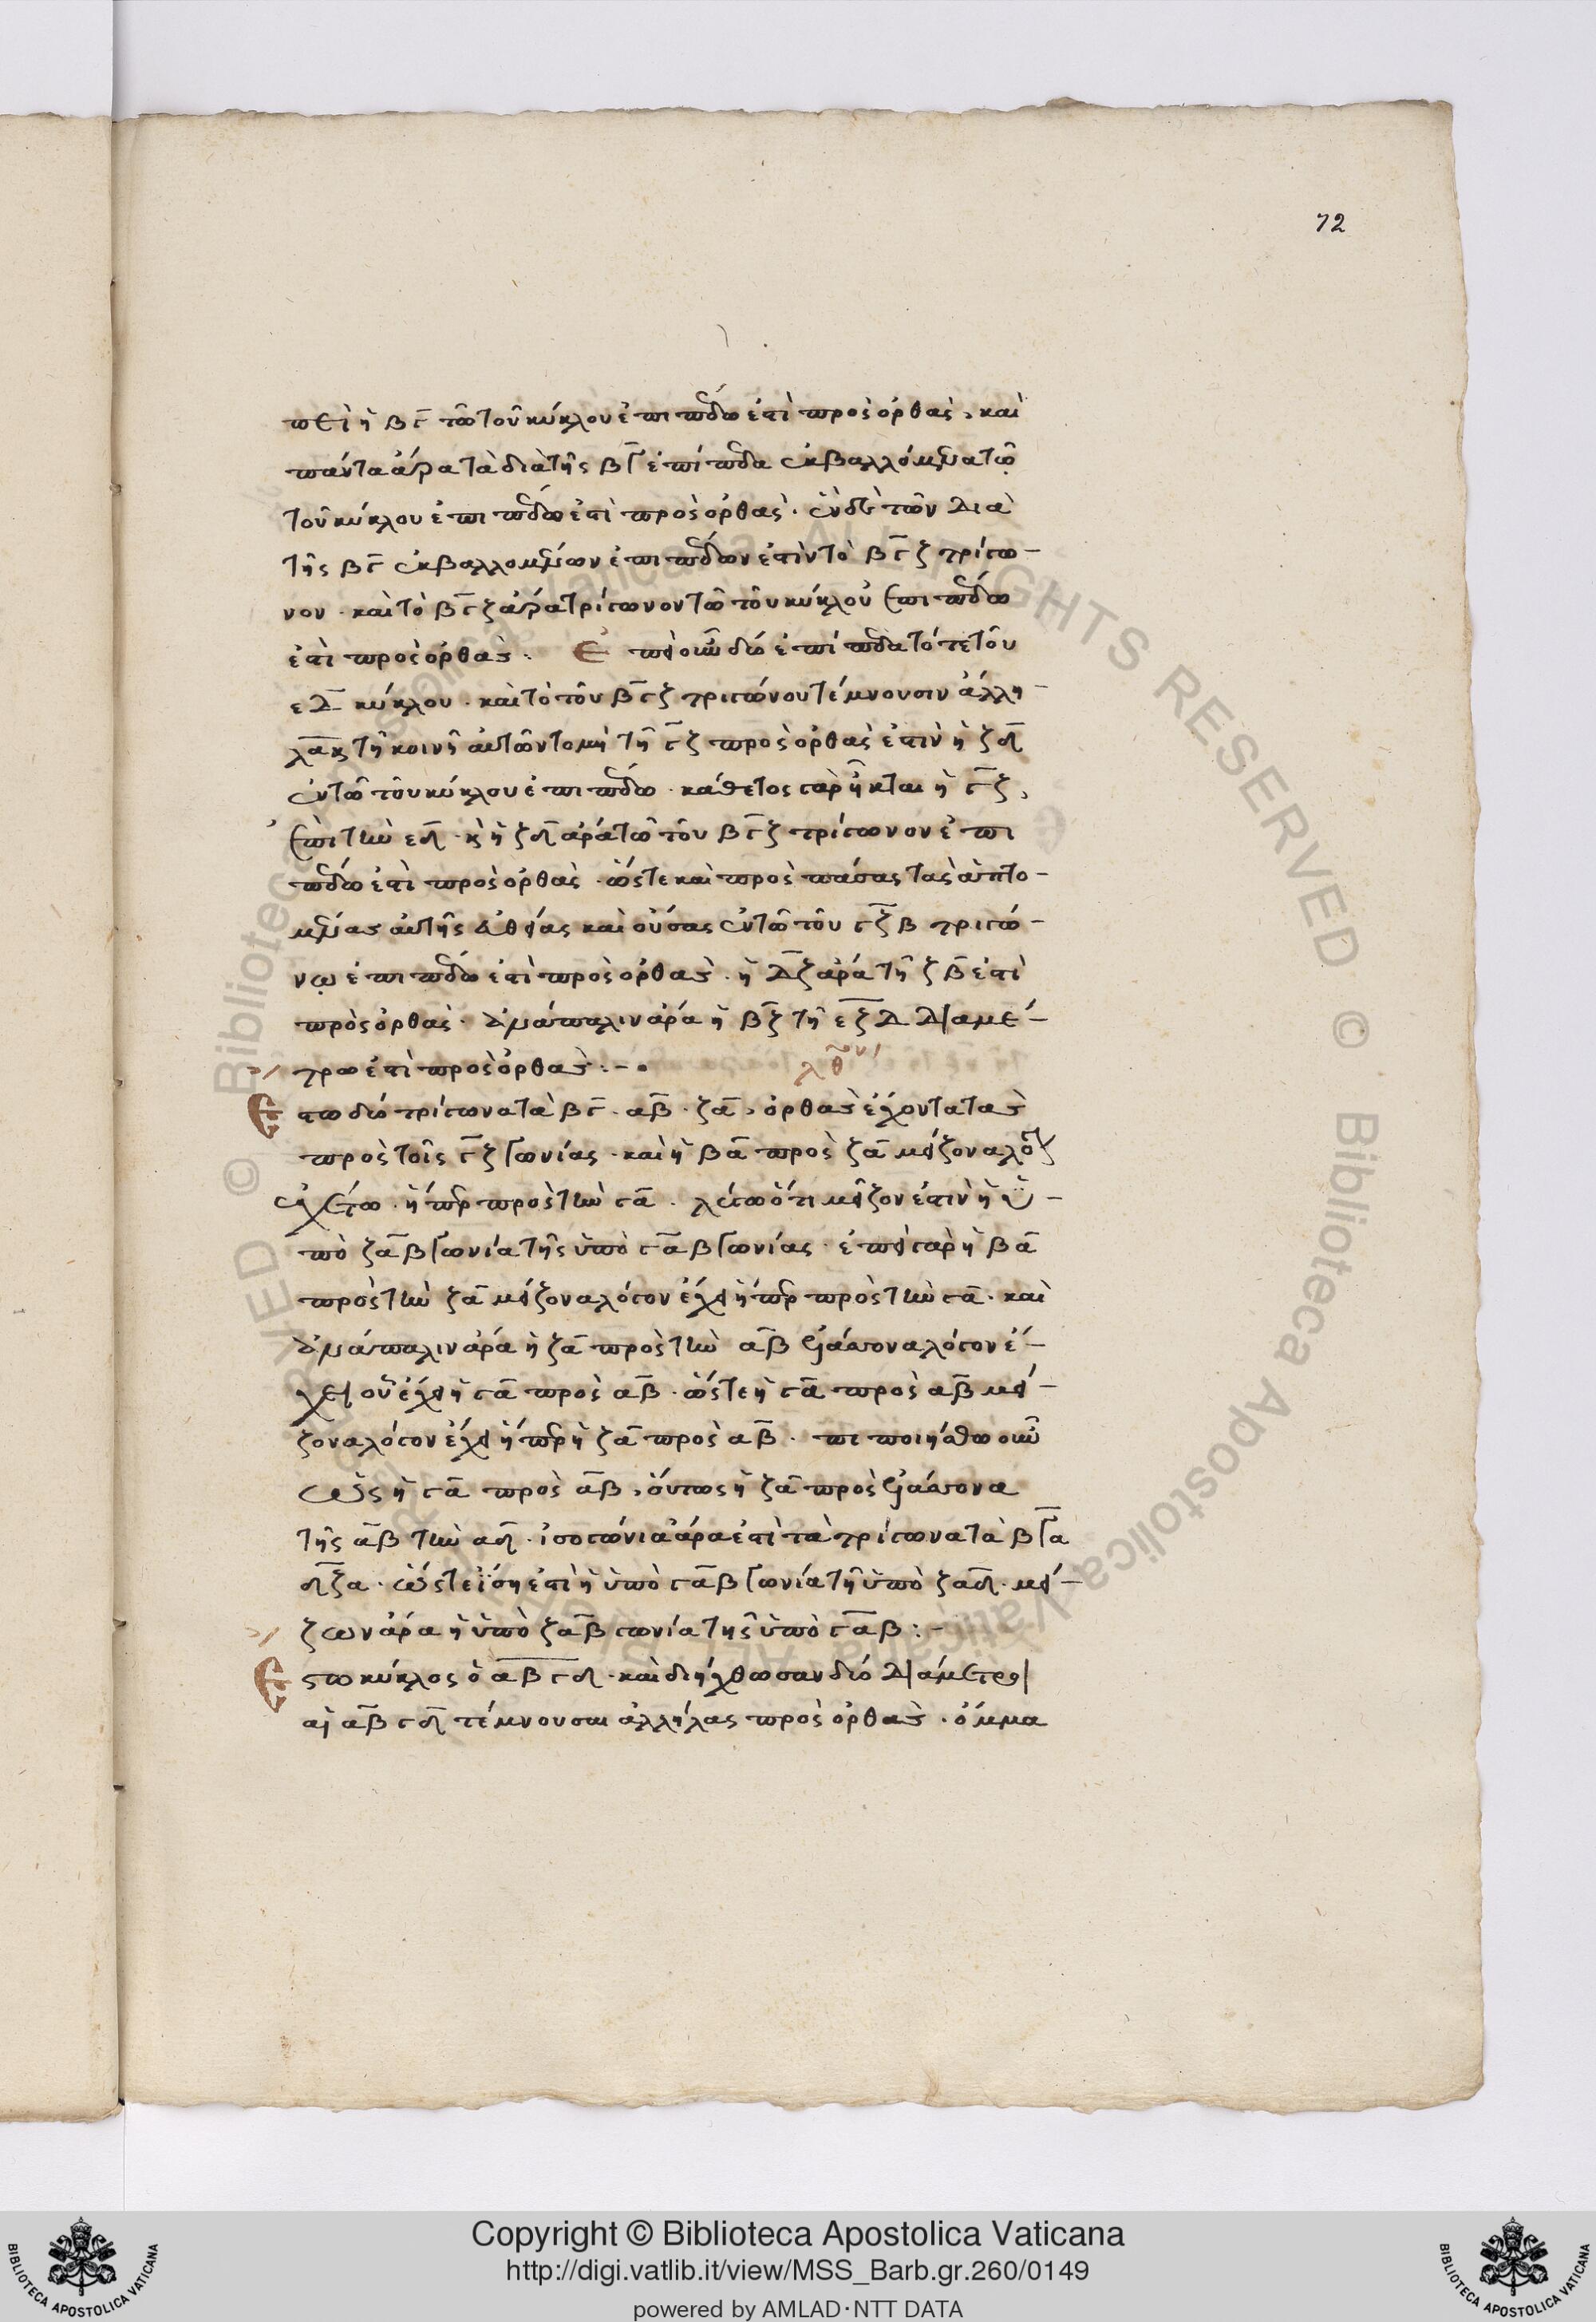 72
πεὶ ἡ βγ τῶ τοῦ κύκλου ἐπιπέδω ἐστὶ πρὸς ὀρθὰς, καὶ
πάντα ἄρα τὰ διὰ τῆς βγ ἐπίπεδα ἐκβαλλόμενα τῷ
τοῦ κύκλου ἐπιπέδω ἐστὶ πρὸς ὀρθὰς. ἓν δὲ τῶν διὰ
τῆς βγ ἐκβαλλομένων ἐπιπέδων ἐστὶν τὸ βγζ τρίγω-
νον. καὶ τὸ βγζ ἄρα τρίγωνον τῶ τοῦ κύκλου ἐπιπέδω
ἐστὶ πρὸς ὀρθάς. Ἐπεὶ οὖν δύο ἐπίπεδα τό τε τοῦ
εδ κύκλου. καὶ τὸ τοῦ βγζ τριγώνου τέμνουσιν ἄλλη-
λα κ τῆ κοινῆ αὐτῶν τομῆ τῆ γζ πρὸς ὀρθὰς ἐστιν ἡ ζη
ἐν τῶ τοῦ κύκλου ἐπιπέδω. κάθετος γὰρ ἦκται ἡ γζ,
ἐπὶ τὴν εη. κ ἡ ζη ἄρα τῶ τοῦ βγζ τρίγωνον ἐπι
πέδω ἐστὶ πρὸς ὀρθὰς. ὥστε καὶ πρὸς πάσας τὰς ἁπτο-
μένας αὐτῆς εὐθείας καὶ οὔσας ἐν τῶ τοῦ γζβ τριγώ-
νῳ ἐπιπέδω ἐστὶ πρὸς ὀρθάς. ἡ δζ ἄρα τῆ ζβ ἐστὶ
πρὸς ὀρθὰς. ἀνάπαλιν ἄρα ἡ βζ τῆ εζδ διαμέ-
τρω ἐστὶ πρὸς ὀρθάς:-
λθ
Ἔστω δύο τρίγωνα τὰ βγ. αβ. ζα, ὀρθὰς ἔχοντα τὰς
πρὸς τοῖς γζ γωνίας. καὶ ἡ βα πρὸς ζα μείζονα λόγ
ἐχέτω. ἤπερ πρὸς τὴν γα. λέγω ὅτι μεῖζον ἐστιν ἡ ὑ-
πὸ ζαβ γωνία τῆς ὑπὸ γαβ γωνίας. ἐπεὶ γὰρ ἡ βα
πρὸς τὴν ζα μείζονα λόγον ἔχει ἤπερ πρὸς τὴν γα. καὶ
ἀνάπαλιν ἄρα ἡ ζα πρὸς τὴν αβ ἐλάσσονα λόγον ἔ-
χει οὗ ἔχει ἡ γα πρὸς αβ. ὥστε ἡ γα πρὸς αβ μεί-
ζονα λόγον ἔχει ἤπερ ἡ ζα πρὸς αβ. πεποιήσθω οὖν
ὡς ἡ γα πρὸς αβ, οὕτως ἡ ζα πρὸς ἐλάσσονα
τῆς αβ τὴν αη. ἰσογώνια ἄρα ἐστὶ τὰ τρίγωνα τὰ βγα
ηζα. ὥστε ἴση ἐστὶ ἡ ὑπὸ γαβ γωνία τῆ ὑπὸ ζαη. μεί-
ζων ἄρα ἡ ὑπὸ ζαβ γωνία τῆς ὑπὸ γαβ:-
Ἔστω κύκλος ὁ αβγη. καὶ διήχθωσαν δύο διάμετροι
αἱ αβ γη τέμνουσαι ἀλλήλας πρὸς ὀρθάς. ὄμμα
Copyright © Biblioteca Apostolica Vaticana
http://digi.vatlib.it/view/MSS_Barb.gr.260/0149
powered by AMLAD·NTT DATA